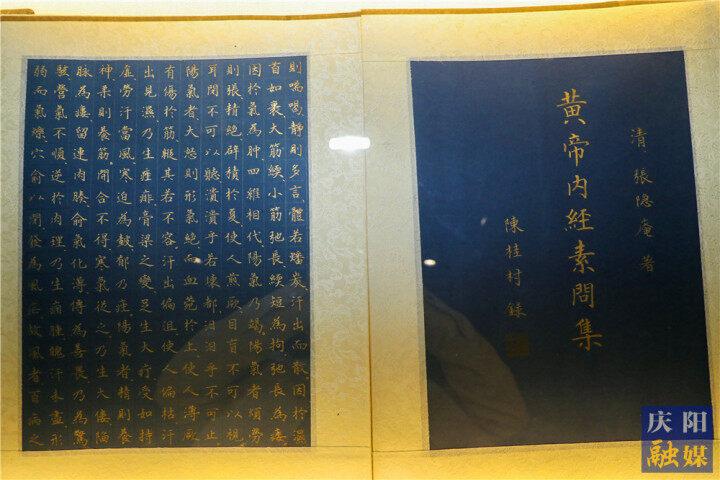 清 張隱庵 著
黃帝內經素問集
陳桂村錄
則喘喝靜則多言體若燔炭汗出而散因於濕
首如裹大筋緛小筋弛長緛短為拘弛長為痿
因於氣為肿四維相代陽氣乃竭陽氣者煩勞
則張精絕辟積於夏使人煎厥目盲不可以視
耳閉不可以聽潰潰乎若壞都汨汨乎不可止
陽氣者大怒則形氣絕而血菀於上使人薄厥
有傷於筋縱其若不容汗出偏沮使人偏枯汗
出見濕乃生痤疿膏粱之變足生大疔受如持
虛勞汗當風寒迫為皶郁乃痤陽氣者精則養
神柔則養筋開合不得寒氣從之乃生大僂陷
脉為瘻留連肉腠俞氣化薄傳為善畏乃為驚
駭營氣不順逆於肉理乃生癰腫魄汗未盡形
弱而氣爍穴俞以閉發為風瘧故風者百病之
庆阳
融媒